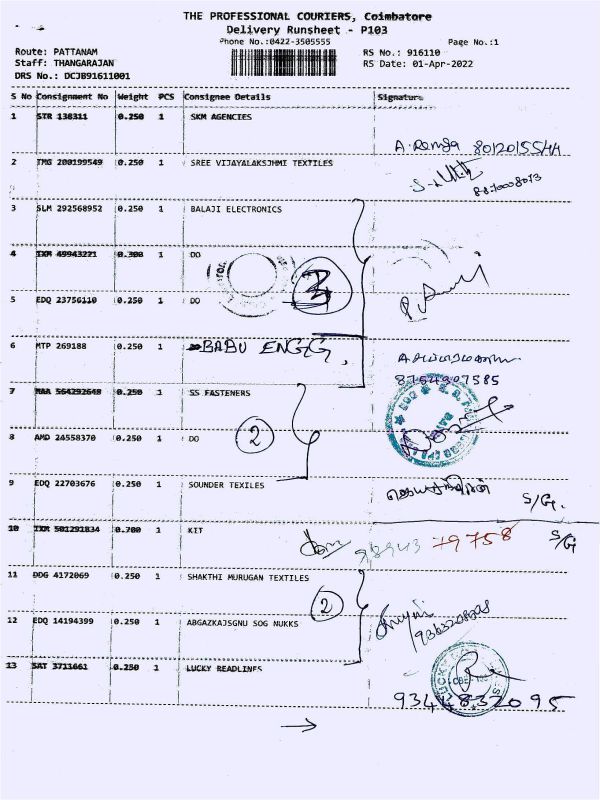 THE PROFESSIONAL COURIERS, Coimbatore
Delivery Runsheet - P103
Phone No.:0422-3505555
Page No.:1
Route: PATTANAM
RS No.: 916110
Staff: THANGARAJAN
RS Date: 01-Apr-2022
DRS No.: DCJB91611001
S No Consignment No Weight PCS Consignee Details Signature
1 STR 138311 0.250 1 SKM AGENCIES
8012015544
2 TMG 200199549 0.250 1 SREE VIJAYALAKSJHMI TEXTILES
3 SLM 292568952 0.250 1 BALAJI ELECTRONICS
4 TXM 49943221 0.300 1 DO
3
5 EDQ 23756110 0.250 1 DO
6 MTP 269188 0.250 1 BABU ENGG,
8754907585
7 MAA 564292648 0.250 1 SS FASTENERS
8 AMD 24558370 0.250 1 DO
2
9 EDQ 22703676 0.250 1 SOUNDER TEXILES
S/G.
10 TXM 501291834 0.700 1 KIT
98943 79758 S/G
11 DDG 4172069 0.250 1 SHAKTHI MURUGAN TEXTILES
2
12 EDQ 14194399 0.250 1 ABGAZKAJSGNU SOG NUKKS
13 SAT 3711661 0.250 1 LUCKY READLINES
9344832095